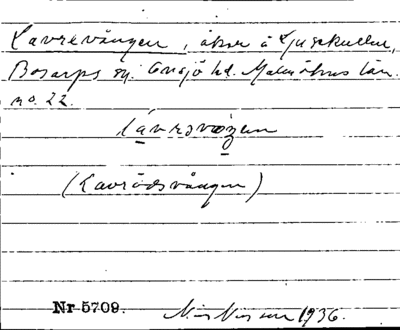 Lavrevången, åker å Ljusekullen,
Bosarps sn. Onsjö hd. Malmöhus län.
no. 22.
lavrəvɔŋən
(Lavrödsvången)
Nr 5709. Nils Nilsson 1936.